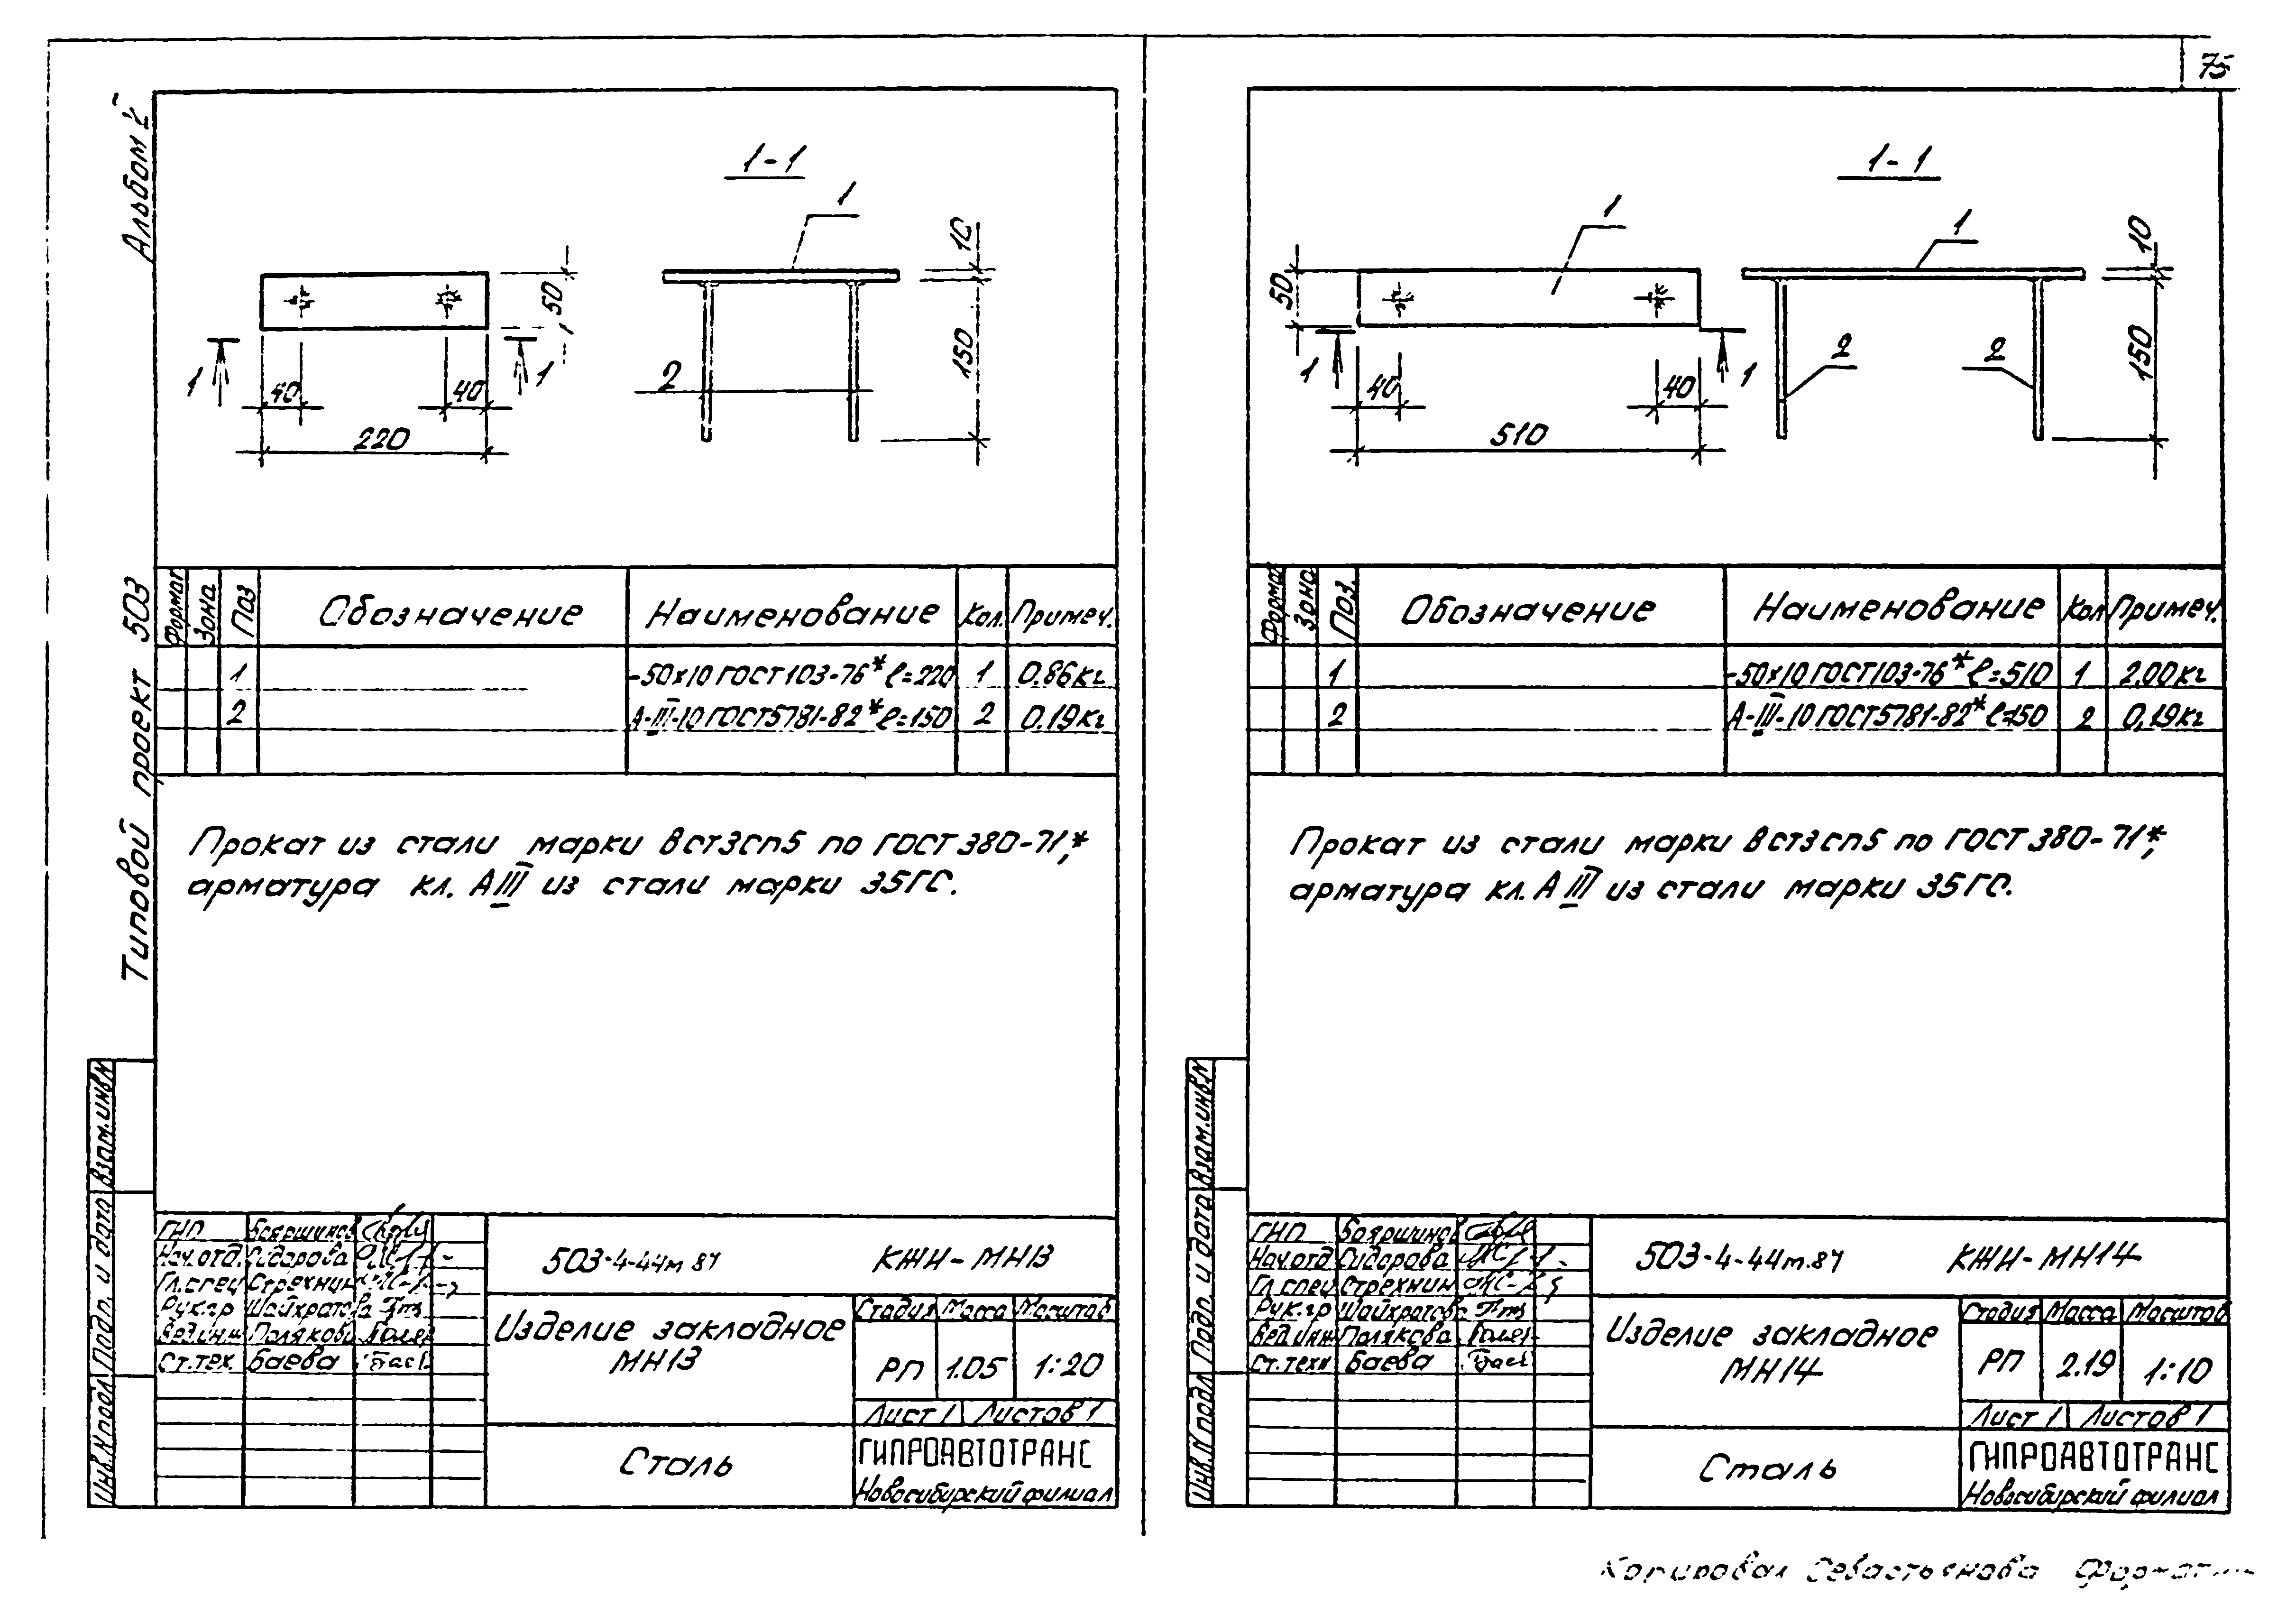 75
Альбом
Типовой проект 503
1-1
1
10
50
150
1
1
40
40
220
2
Формат Зона Поз Обозначение Наименование Кол. Примеч.
1 -50х10 ГОСТ 103-76* ℓ=220 1 0.86кг
2 А-III-10 ГОСТ5781-82* ℓ=150 2 0.19кг
Прокат из стали марки Вст3сп5 по ГОСТ 380-71*,
арматура кл. АIII из стали марки 35ГС.
Взам.инв.N
Подп. и дата
Инв.N подл
ГИП Бояршинов
Нач.отд. Сидорова
Гл.спец Стрехнин
Рук.гр Шайхратова
Вед.инж Полякова
Ст.тех. Баева
503-4-44м 87 КЖИ-МН13
Изделие закладное
МН13
Стадия Масса Масштаб
РП 1.05 1:20
Лист 1 Листов 1
Сталь
ГИПРОАВТОТРАНС
Новосибирский филиал
1-1
1
1
10
50
150
1
1
2
2
40
40
510
Формат Зона Поз. Обозначение Наименование Кол Примеч.
1 -50х10 ГОСТ103-76* ℓ=510 1 2.00кг
2 А-III-10 ГОСТ5781-82* ℓ=150 2 0,19кг
Прокат из стали марки Вст3сп5 по ГОСТ 380-71*,
арматура кл. АIII из стали марки 35ГС.
Взам.инв.N
Подп. и дата
Инв.N подл
ГИП Бояршинов
Нач.отд Сидорова
Гл.спец Стрехнин
Рук.гр Шайхратова
Вед.инж Полякова
Ст.техн Баева
503-4-44м.87 КЖИ-МН14
Изделие закладное
МН14
Стадия Масса Масштаб
РП 2.19 1:10
Лист 1 Листов 1
Сталь
ГИПРОАВТОТРАНС
Новосибирский филиал
Копировал Севастьянова Формат